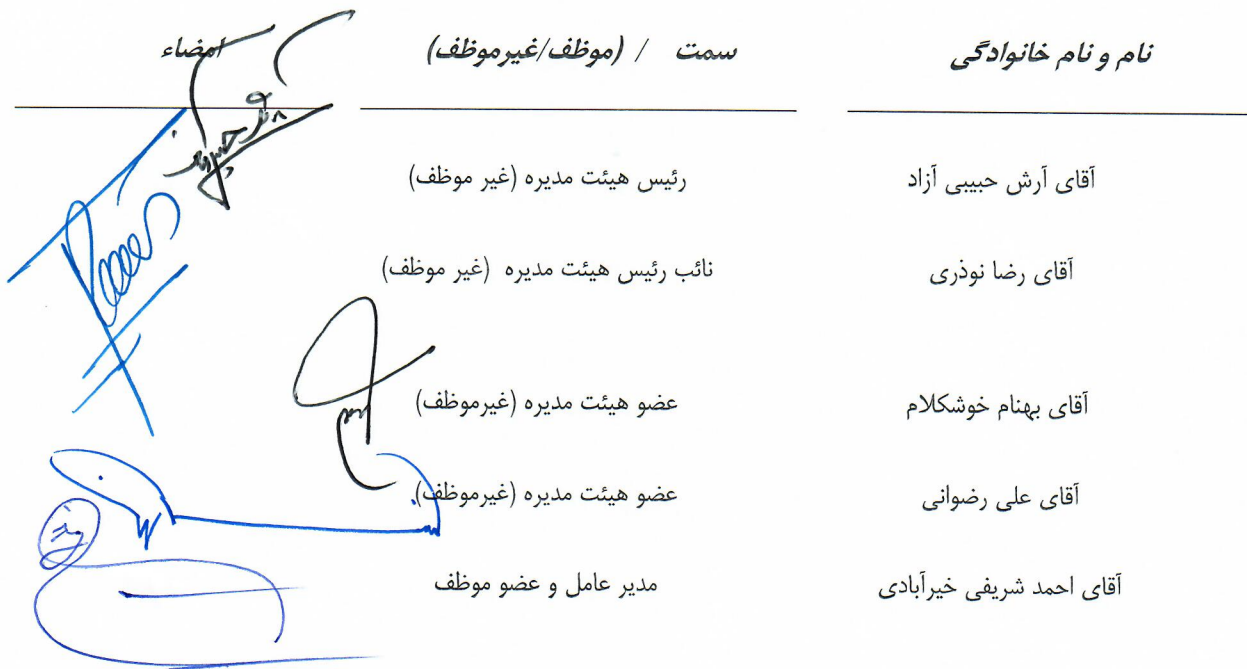 نام و نام خانوادگی سمت / (موظف/غیرموظف) امضاء
آقای آرش حبیبی آزاد رئیس هیئت مدیره (غیر موظف)
آقای رضا نوذری نائب رئیس هیئت مدیره (غیر موظف)
آقای بهنام خوشکلام عضو هیئت مدیره (غیرموظف)
آقای علی رضوانی عضو هیئت مدیره (غیرموظف)
آقای احمد شریفی خیرآبادی مدیر عامل و عضو موظف